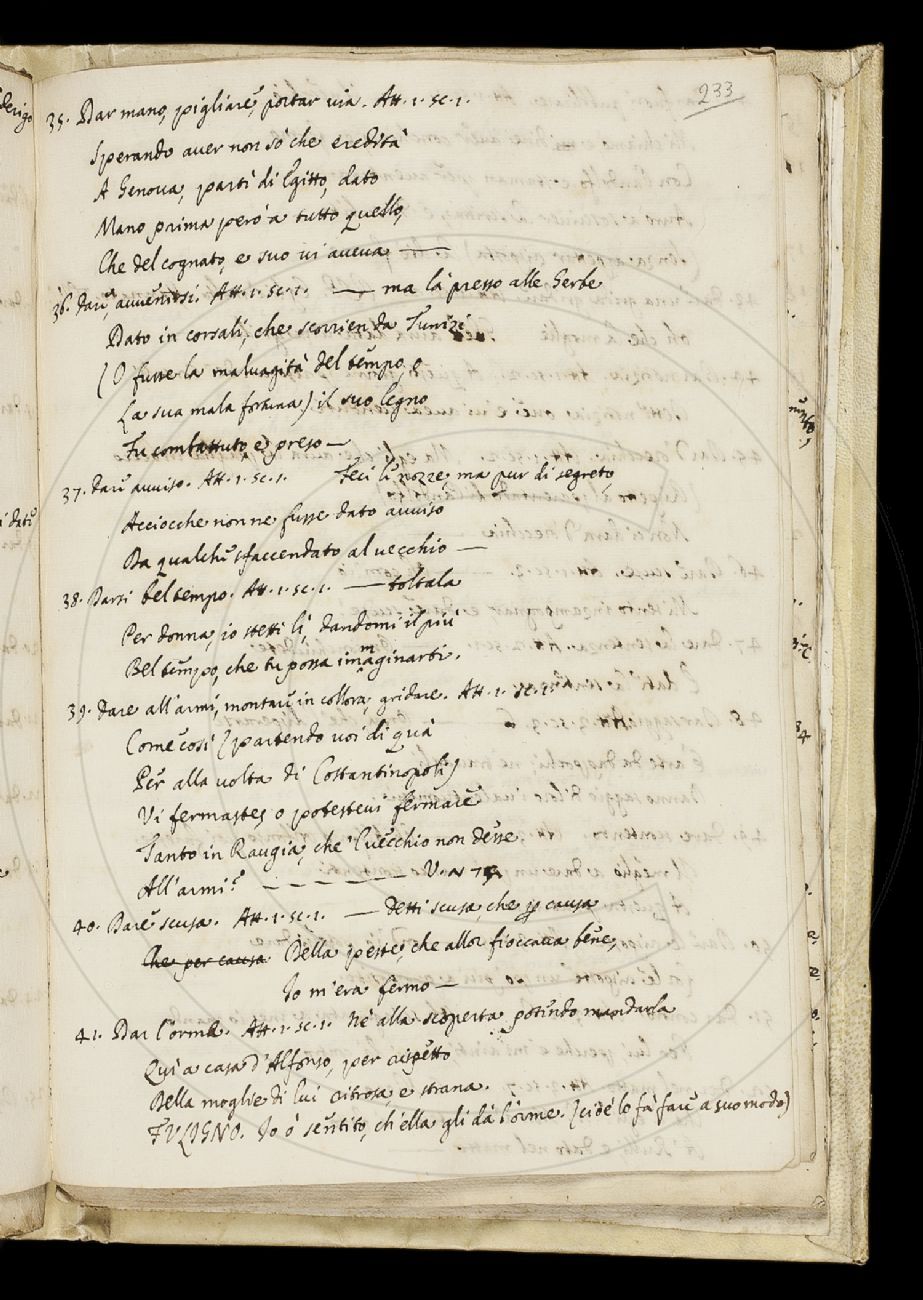 233
35. Dar mano, pigliare, portar via. Att. 1. sc. 1.
Sperando aver non sò che eredità
A Genova, partì di Egitto, dato
Mano prima però a tutto quello,
Che del cognato, e suo ivi aveva —
36. Dare, avvenirsi. Att. 1. sc. 1. — ma là presso alle Gerbe
Dato in corsali, che scorrien da Tunizi
(O fusse la malvagità del tempo, o
La sua mala fortuna) il suo legno
Fu combattuto, e preso —
37. Dare avviso. Att. 1. sc. 1. Feci le nozze, ma pur di segreto
Acciocche non ne fusse dato avviso
Da qualche sfaccendato al vecchio —
38. Darsi bel tempo. Att. 1. sc. 1. — toltala
Per donna, io stetti lì, dandomi il più
Bel tempo, che tu possa immaginarti.
39. Dare all'armi, montare in collora, gridare. Att. 1. sc. 1.
Come così (partendo voi di quà
Per alla volta di Costantinopoli)
Vi fermastes, o potestevi fermare
Tanto in Raugia, che 'l vecchio non desse
All'armi? — — — — — — V. N 79
40. Dare scusa. Att. 1. sc. 1. — detti scusa, che p causa
Che per causa Della peste, che allor fioccava bene,
Io m'era fermo —
41. Dar l'orme. Att. 1. sc. 1. Nè alla scoperta potendo mandarla
Quì a casa d'Alfonso, per rispetto
Della moglie di lui ritrosa, e strana.
FULIGNO. Io ò sentito, ch'ella gli dà l'orme. (cioè lo fà fare a suo modo)